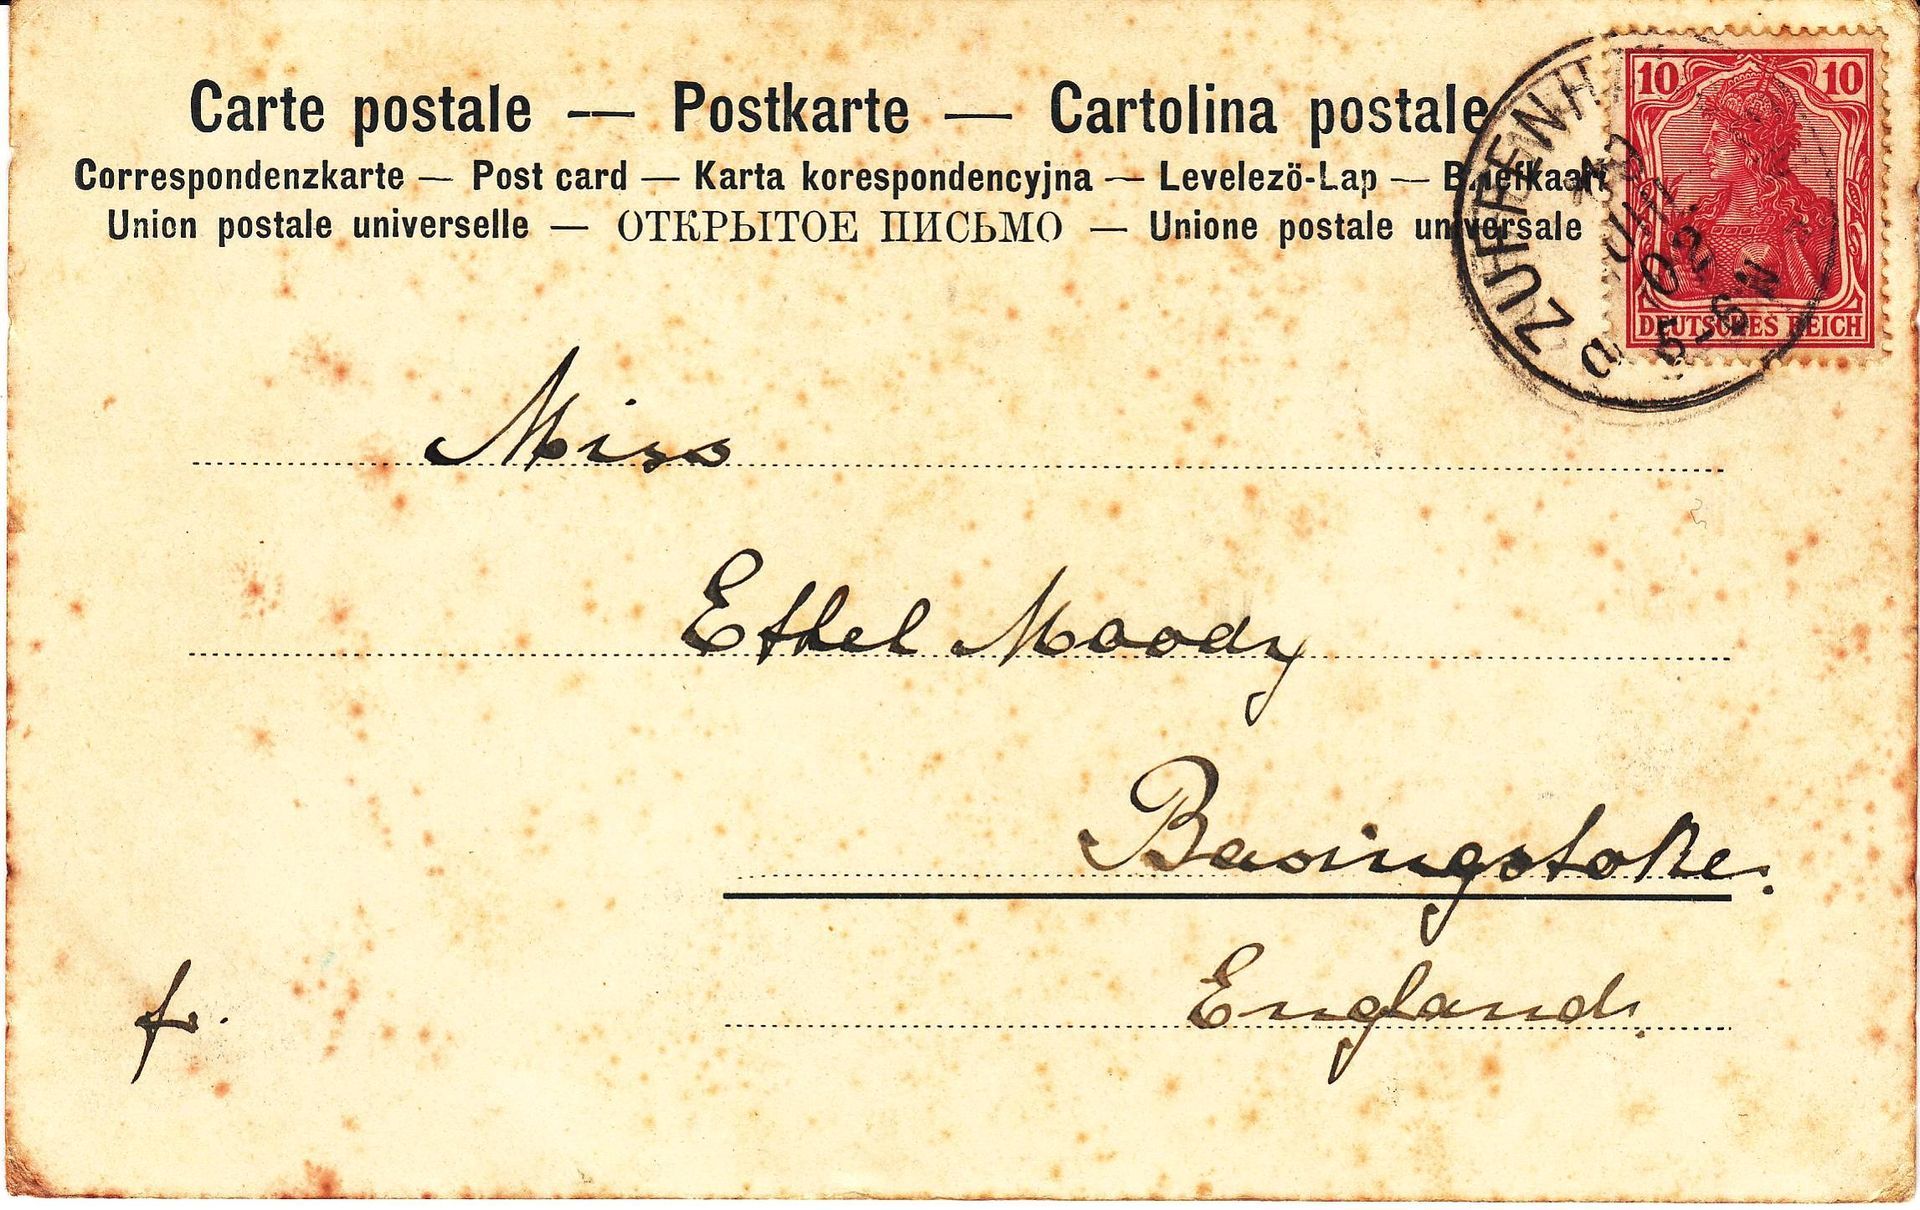 Carte postale — Postkarte — Cartolina postale
Correspondenzkarte — Post card — Karta korespondencyjna — Levelezö-Lap — Briefkaart
Union postale universelle — ОТКРЫТОЕ ПИСЬМО — Unione postale universale
10 10
DEUTSCHES REICH
ZUFFENHA
JUN
02
5-6N
a
Miss
Ethel Moody
Basingstoke.
England.
fr.